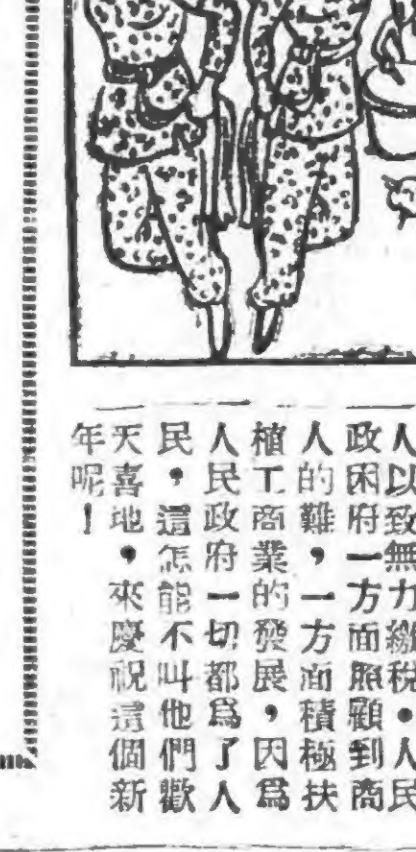 人以致無力繳稅。人民
政困府一方面照顧到商
人的難，一方面積極扶
植工商業的發展，因爲
人民政府一切都爲了人
民，這怎能不叫他們歡
天喜地，來慶祝這個新
年呢！